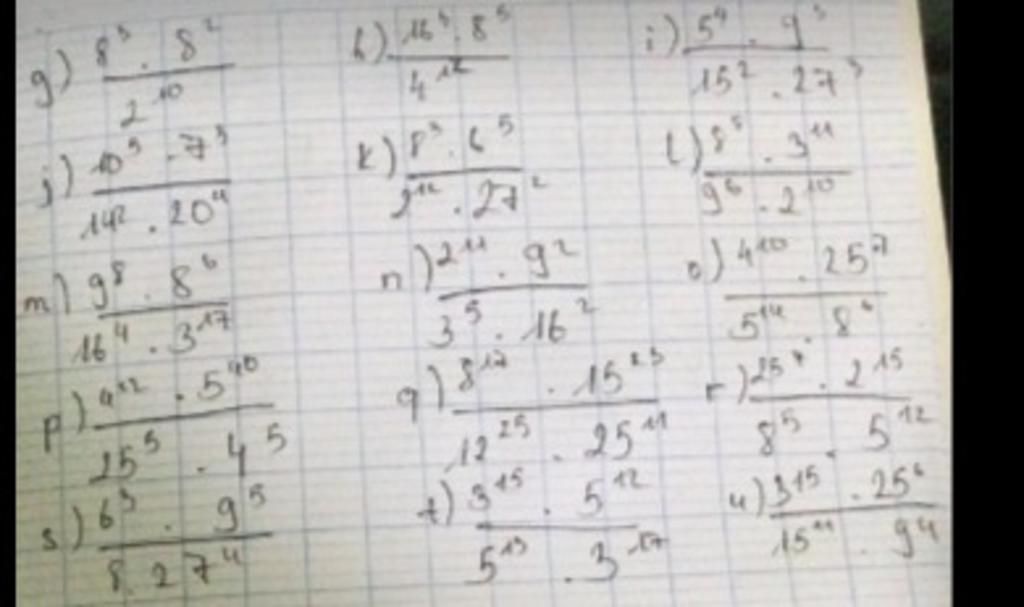 g) 8³ · 8² / 2¹⁰ h) 16³ · 8⁵ / 4¹² i) 5⁴ · 9³ / 15² · 27³
j) 10⁵ · 7³ / 14² · 20⁴ k) 8³ · 6⁵ / 2¹² · 27² l) 8⁵ · 3¹¹ / 9⁶ · 2¹⁰
m) 9⁸ · 8⁶ / 16⁴ · 3¹⁷ n) 2¹¹ · 9² / 3⁵ · 16² o) 4¹⁰ · 25⁷ / 5¹⁴ · 8⁶
p) 4¹² · 5¹⁰ / 25⁵ · 4⁵ q) 8¹⁷ · 15²³ / 12²⁵ · 25¹¹ r) 25⁷ · 2¹⁵ / 8⁵ · 5¹²
s) 6³ · 9⁵ / 8 · 27⁴ t) 3¹⁵ · 5¹² / 5¹³ · 3¹⁷ u) 3¹⁵ · 25⁶ / 15¹¹ · 9⁴